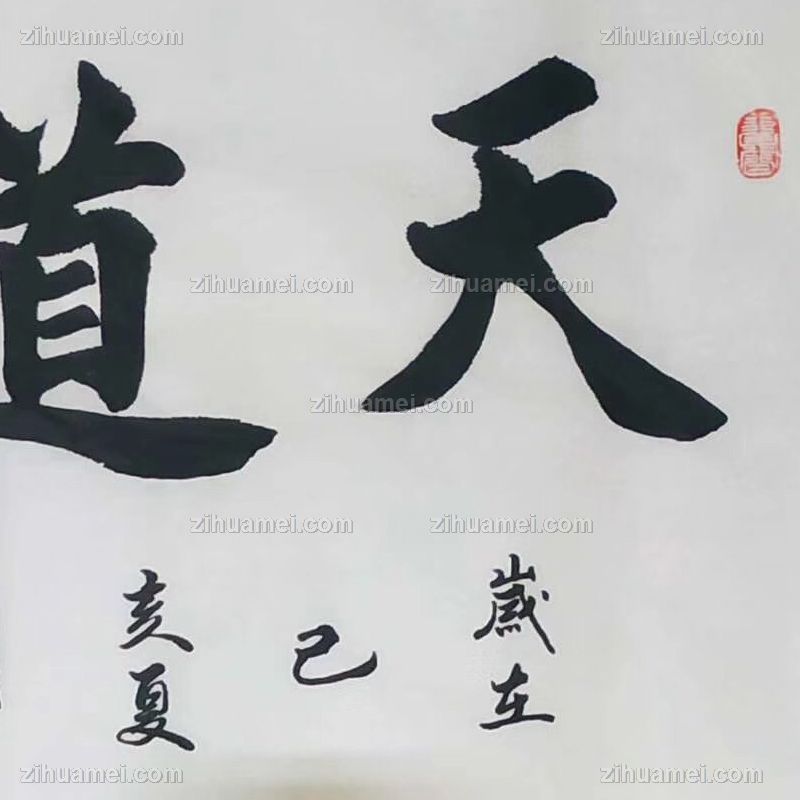 天道
歲在
己
亥夏
zihuamei.com
zihuamei.com
zihuamei.com
zihuamei.com
zihuamei.com
zihuamei.com
zihuamei.com
zihuamei.com
zihuamei.com
zihuamei.com
zihuamei.com